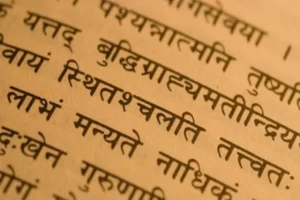 गसेवया ।
पश्यन्नात्मनि तुष्य
यत्तद् बुद्धिग्राह्यमतीन्द्रिय
वायं स्थितश्चलति तत्त्वतः
लाभं मन्यते नाधिकं
दुःखेन गुरुणा